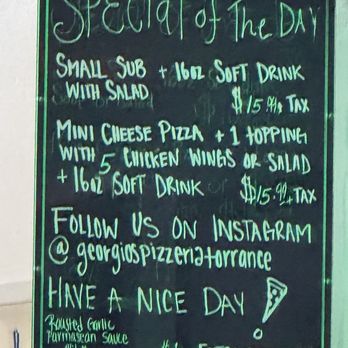 SPECIAL of THE DAY
SMALL SUB + 16oz SOFT DRINK
WITH SALAD $15.99+ TAX
MINI CHEESE PIZZA + 1 TOPPING
WITH 5 CHICKEN WINGS OR SALAD
+ 16oz SOFT DRINK $15.99+TAX
FOLLOW US ON INSTAGRAM
@ georgiospizzeriatorrance
HAVE A NICE DAY!
Roasted Garlic
Parmasean Sauce